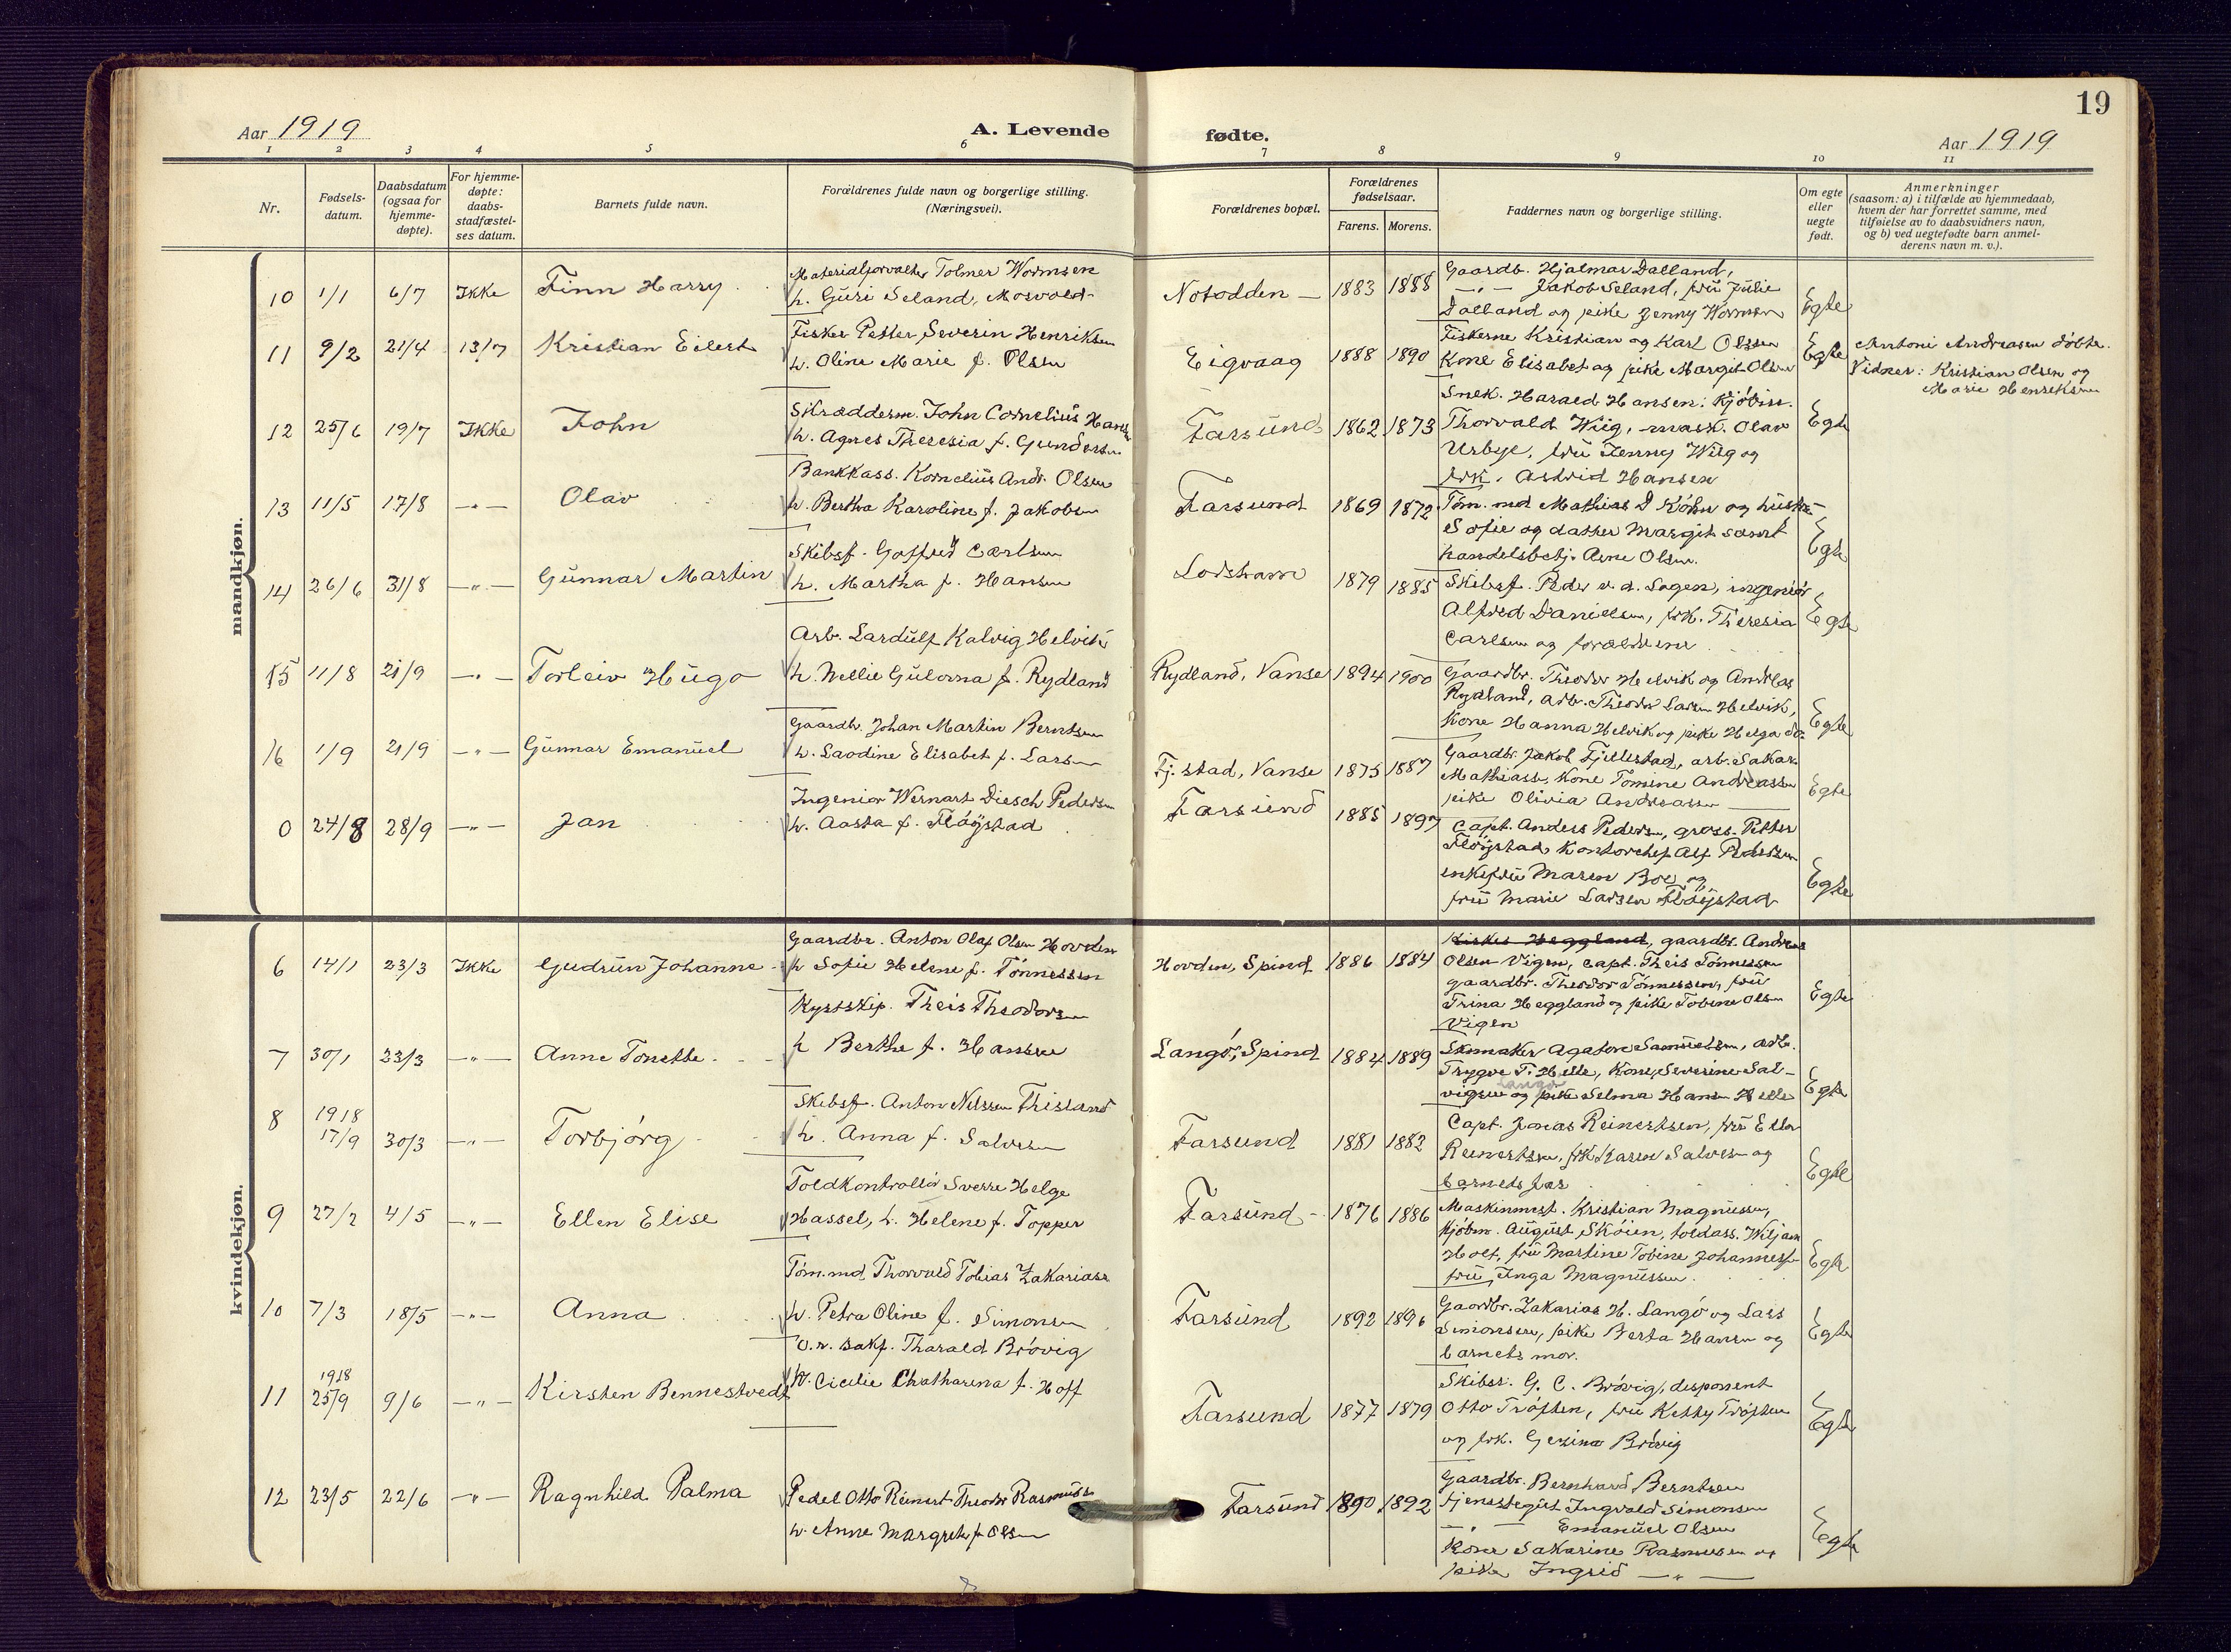 19
Aar 1919 A. Levende fødte. Aar 1919
1 2 3 4 5 6 7 8 9 10 11
Nr.
Fødsels-
datum.
Daabsdatum
(ogsaa for
hjemme-
døpte).
For hjemme-
døpte:
daabs-
stadfæstel-
ses datum.
Barnets fulde navn.
Forældrenes fulde navn og borgerlige stilling.
(Næringsvei).
Forældrenes bopæl.
Forældrenes
fødselsaar.
Farens. Morens.
Faddernes navn og borgerlige stilling.
Om egte
eller
uegte
født.
Anmerkninger
(saasom: a) i tilfælde av hjemmedaab,
hvem der har forrettet samme, med
tilføielse av to daabsvidners navn,
og b) ved uegtefødte barn anmel-
derens navn m. v.).
mandkjøn.
10 1/1 6/7 Ikke Finn Harry
Materialforvalter Tolmer Wormsen
h. Guri Seland, Mosvold
Notodden 1883 1888
Gaardb. Hjalmar Dalland,
—"— Jakob Seland, frü Julie
Dalland og pike Jenny Wormsen
Egte
11 9/2 21/4 13/7 Kristian Eilert
Fisker Petter Severin Henriksen
h. Oline Marie f. Olsen
Eigvaag 1888 1890
Fiskerne Kristian og Karl Olsen
Kone Elisabet og pike Margit Olsen
Egte
Antoni Andreasen döbte.
Vidner: Kristian Olsen og
Marie Henriksen
12 25/6 19/7 Ikke John
Skrædderm. John Cornelius Hansen
h. Agnes Theresia f. Gundersen
Farsund 1862 1873
Snek. Harald Hansen, Kjöbm.
Thorvald Wiig, mask. Olav
Urbye, frü Jenny Wiig og
frk. Astrid Hansen
Egte
13 11/5 17/8 —"— Olav
Bankkass. Kornelius Andr. Olsen
h. Bertha Karoline f. Jakobsen
Farsund 1869 1872
Töm. md Mathias D Köhn og hustr.
Sofie og datter Margit samt
handelsbetj. Arne Olsen.
Egte
14 26/6 31/8 —"— Gunnar Martin
Skibsf. Gotfred Carlsen
h. Martha f. Hansen
Lodshavn 1879 1885
Skibsf. Peder v. d. Lagen, ingeniör
Alfred Danielsen, frk. Theresia
Carlsen og forældrene
Egte
15 11/8 21/9 —"— Torleiv Hugo
Arb. Lardulf Kalvig Helvik
h. Nellie Gulorna f. Rydland
Rydland, Vanse 1894 1900
Gaardbr. Theodor Helvik og Andreas
Rydland, arb. Theodor Larsen Helvik,
Kone Hanna Helvik og pike Helga do.
Egte
16 1/9 21/9 —"— Gunnar Emanuel
Gaardbr. Johan Martin Berntsen
h. Laodine Elisabet f. Larsen
Fj. stad, Vanse 1875 1887
Gaardbr. Jakob Fjellestad, arb. Sakar.
Mathiass., Kone Tomine Andreassen
pike Olivia Andreassen
Egte
0 24/8 28/9 —"— Jan
Ingeniør Wernart Diesch Pedersen
h. Aasta f. Flöystad
Farsund 1885 1897
Capt. Anders Pedersen, gross. Petter
Flöystad Kontorchef Alf Pedersen
enkefrü Maren Boe og
frü Marie Larsen Flöystad
Egte
kvindekjøn.
6 14/1 23/3 Ikke Gudrun Johanne
Gaardbr. Anton Olaf Olsen Hovden
h Sofie Helene f. Tönnessen
Hovden, Spind 1886 1884
gaardbr. Andreas
Olsen Vigen, Capt. Theis Tönnessen
gaardbr. Theodor Tönnessen, frü
Trina Heggland og pike Tobine Olsen
Vigen
Egte
7 30/1 23/3 —"— Anne Tonette
Kystskip. Theis Theodorsen
h Berthe f. Hansen
Langö, Spind 1884 1889
Skomaker Agaton Samuelsen, arb.
Trygve T. Helle, Kone Severine Sal-
vigsen og pike Selma Hansen Helle
Langö
Egte
8 1918
17/9 30/3 —"— Torbjörg
Skibsf. Anton Nilssen Thisland
h. Anna f. Salvesen
Farsund 1881 1882
Capt. Jonas Reinertsen, frü Ellen
Reinertsen, frk Karen Salvesen og
barnets far
Egte
9 27/2 4/5 —"— Ellen Elise
Toldkontrollör Sverre Helge
Hassel, h. Helene f. Topper
Farsund 1876 1886
Maskinmst. Kristian Magnussen,
Kjöbm. August Sköien, toldass. Wiljam
Holt, frü Martine Tobine Johannesen
frü Inga Magnussen.
Egte
10 7/3 18/5 —"— Anna
Töm.md. Thorvald Tobias Zakariass
h. Petra Oline f. Simonsen
Farsund 1892 1896
Gaardbr. Zakarias H. Langö og Lars
Simonsen, pike Berta Hansen og
barnets mor.
Egte
11 1918
25/9 9/6 —"— Kirsten Bennestvedt
O.r. sakf. Tharald Brövig
h. Cicilie Chatharina f. Hoff
Farsund 1877 1879
Skibsr. G. C. Brövig, disponent
Otto Tröften, frü Ketty Tröften
og frk. Gesina Brövig
Egte
12 23/5 22/6 —"— Ragnhild Palma
Pedel Otto Reinert Theodor Rasmuss.
h. Anne Margrethe f. Olsen
Farsund 1890 1892
Gaardbr. Bernhard Berntsen
tjenestegut Ingvald Simonsen
—"— Emanuel Olsen
Kone Sakarine Rasmussen og
pike Ingrid —"—
Egte